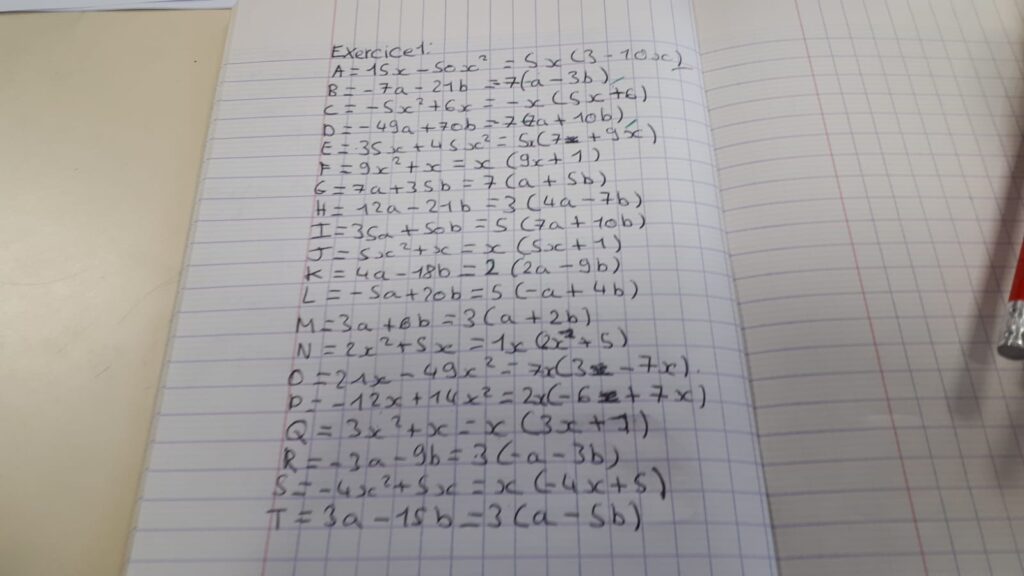 Exercice 1:
A = 15x - 50x² = 5x(3 - 10x)
B = -7a - 21b = 7(a - 3b)
C = -5x² + 6x = -x(5x + 6)
D = -49a + 70b = 7(7a + 10b)
E = 35x + 45x² = 5x(7 + 9x)
F = 9x² + x = x(9x + 1)
G = 7a + 35b = 7(a + 5b)
H = 12a - 21b = 3(4a - 7b)
I = 35a + 50b = 5(7a + 10b)
J = 5x² + x = x(5x + 1)
K = 4a - 18b = 2(2a - 9b)
L = -5a + 20b = 5(-a + 4b)
M = 3a + 6b = 3(a + 2b)
N = 2x² + 5x = 1x(2x + 5)
O = 21x - 49x² = 7x(3 - 7x).
P = -12x + 14x² = 2x(-6 + 7x)
Q = 3x² + x = x(3x + 1)
R = -3a - 9b = 3(-a - 3b)
S = -4x² + 5x = x(-4x + 5)
T = 3a - 15b = 3(a - 5b)